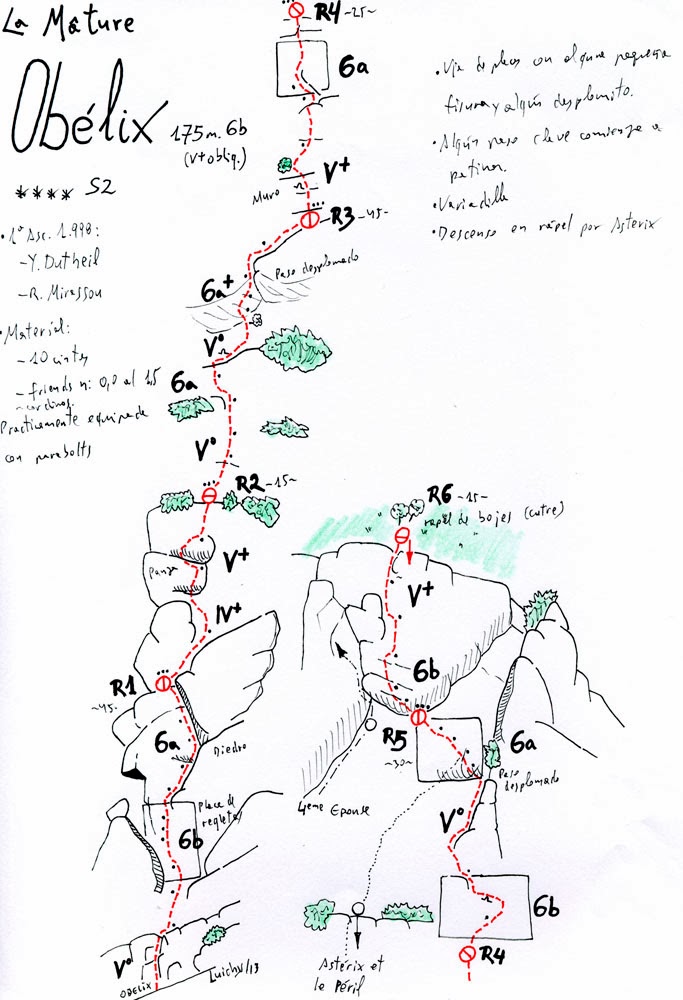 La Mâture
Obélix
175m. 6b
(V+ obliq.)
**** S2
• 1ª Asc. 1.998:
- Y. Dutheil
- R. Mirassou
• Material:
- 10 cintas
- friends n: 0,0 al 1,5
- cordinos.
Practicamente equipada
con parabolts
• Vía de placas con alguna pequeña
fisura y algún desplomito.
• Algún paso clave comienza a
patinar.
• Variadilla
• Descenso en rápel por Asterix
R4 ~25~
6a
V+
Muro
R3 ~45~
Paso desplomado
6a+
Vº
6a
Vº
R2 ~15~
V+
Panza
IV+
R1
~45~
6a
Diedro
Placa de
regletas
6b
Vº
OBELIX
Luichy/13
R6 ~15~
rapel de bojes (cutre)
V+
6b
R5
~30~
6a
Paso
desplomado
4eme Epouse
Vº
6b
R4
Astérix et
le Péril